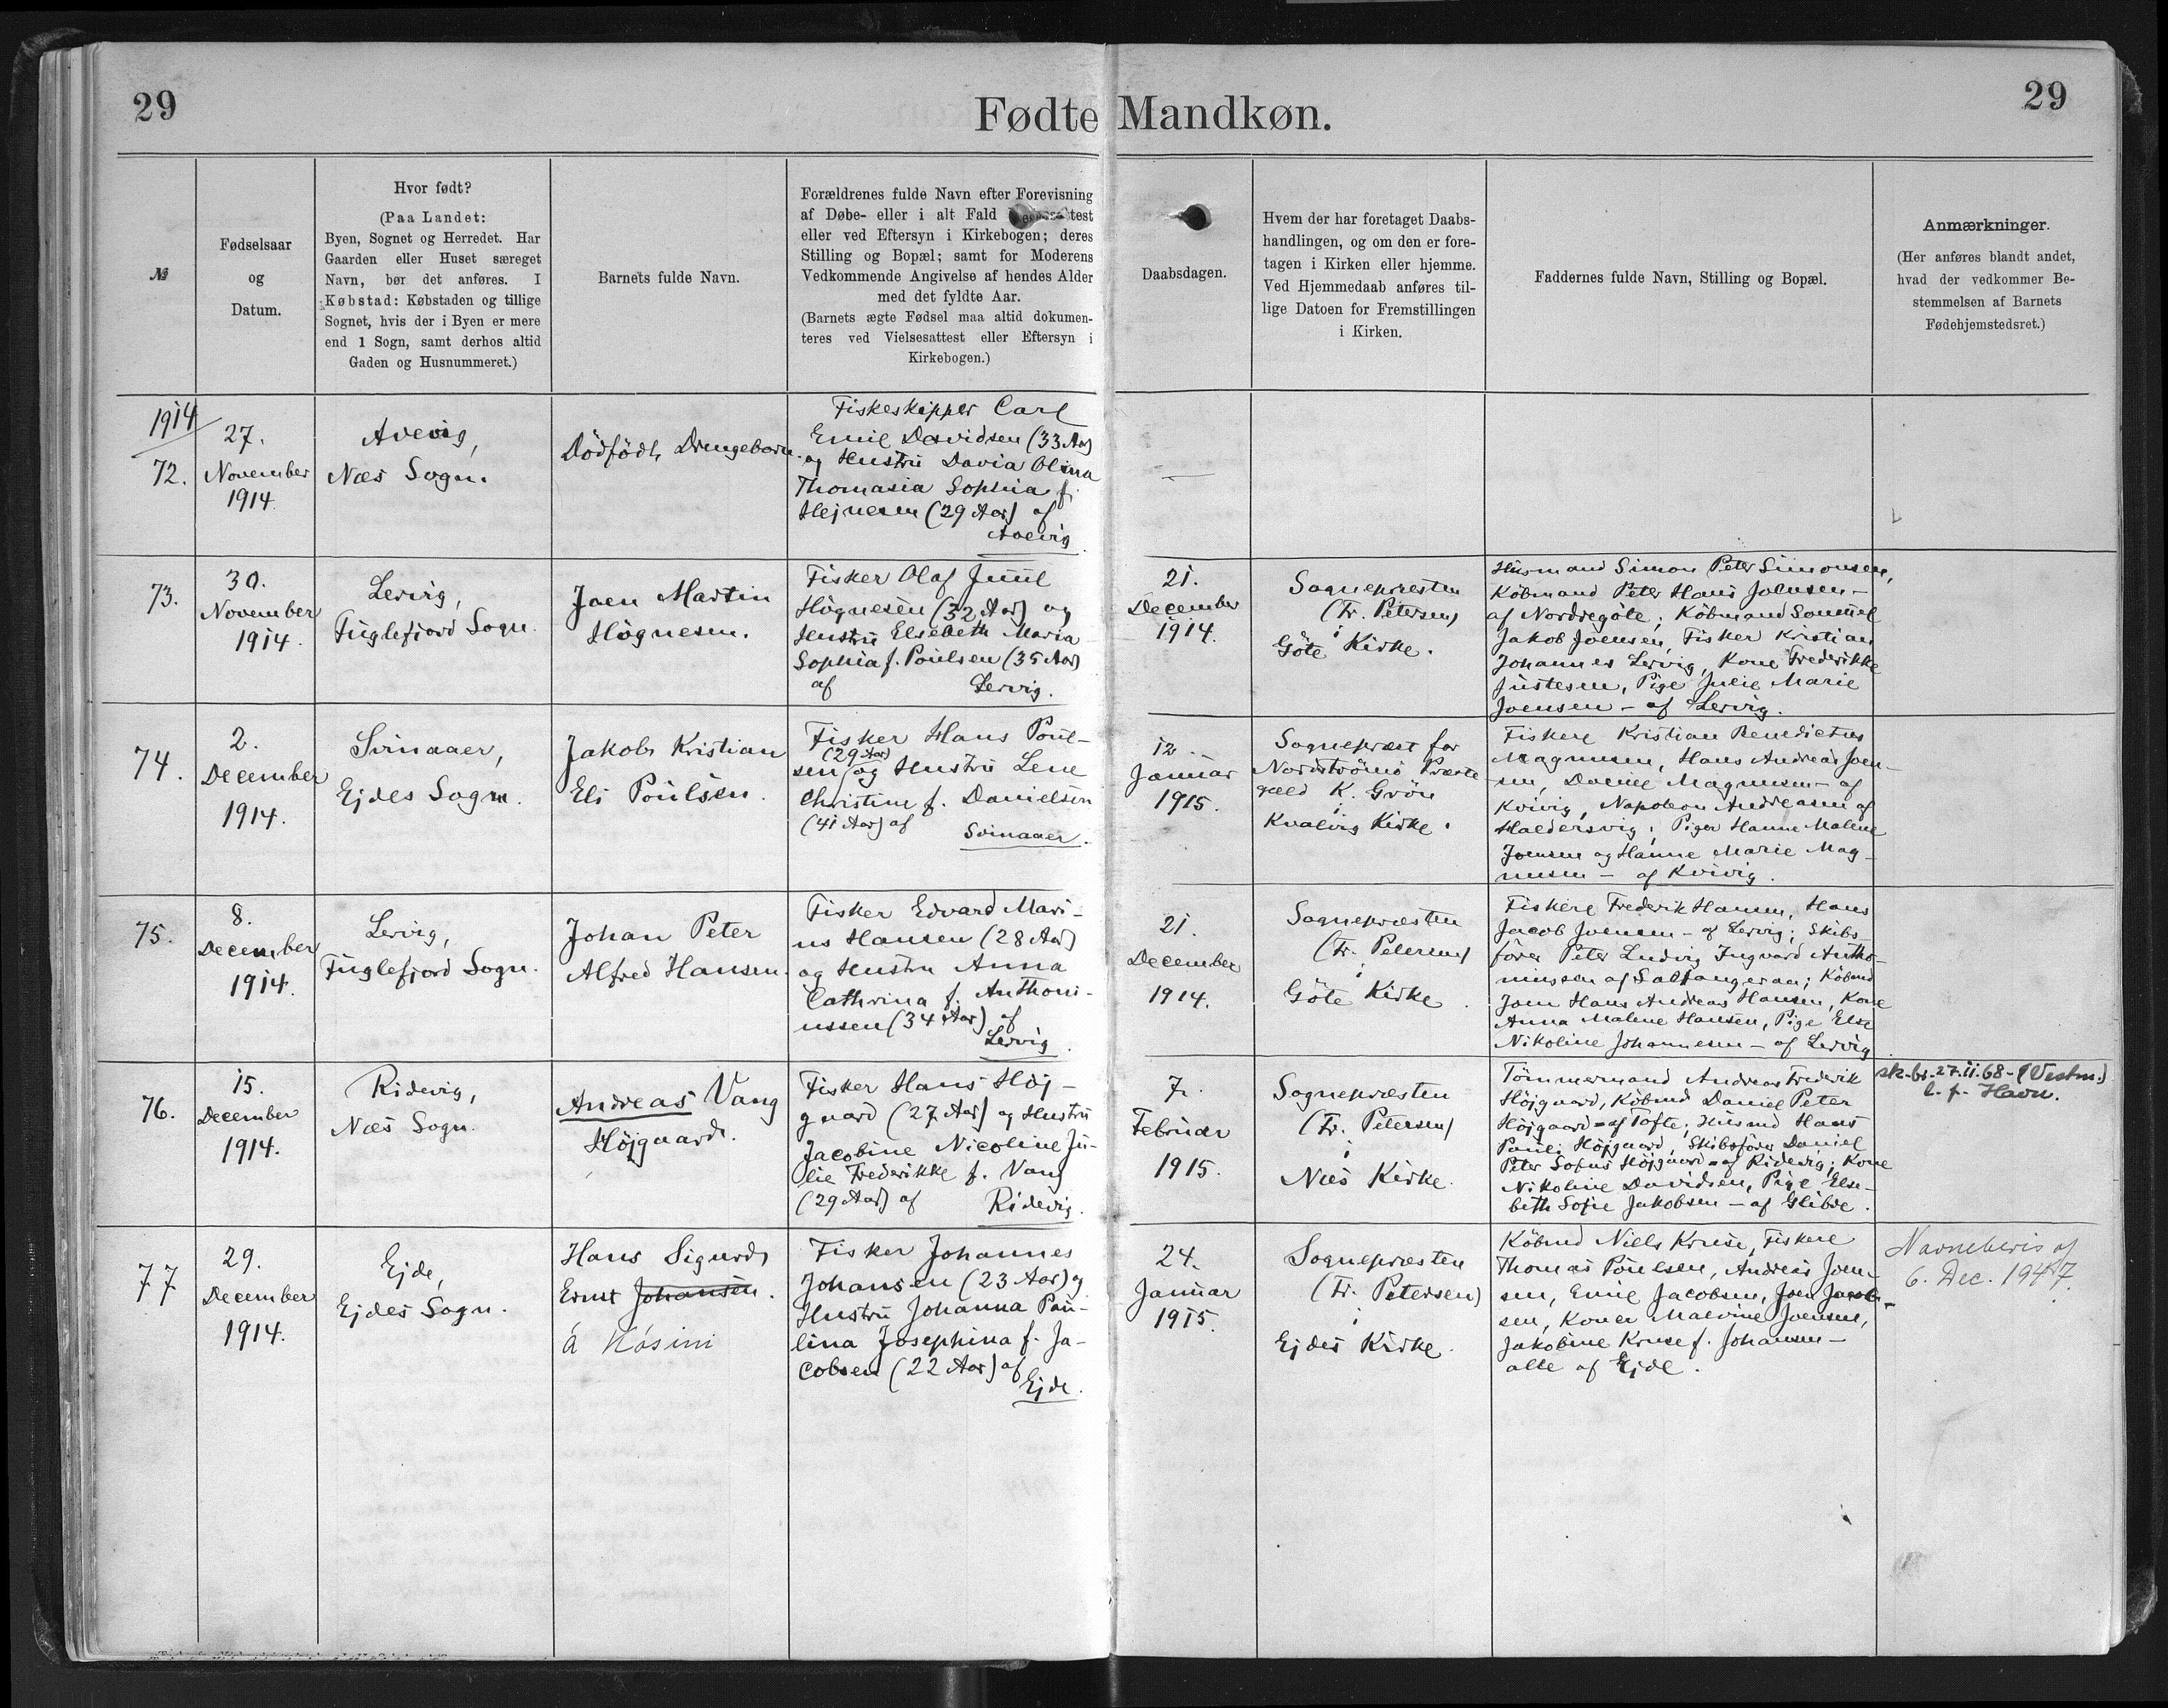 29
Fødte Mandkøn.
29
№
Fødselsaar
og
Datum.
Hvor født?
(Paa Landet:
Byen, Sognet og Herredet. Har
Gaarden eller Huset særeget
Navn, bør det anføres. I
Købstad: Købstaden og tillige
Sognet, hvis der i Byen er mere
end 1 Sogn, samt derhos altid
Gaden og Husnummeret.)
Barnets fulde Navn.
Forældrenes fulde Navn efter Forevisning
af Døbe- eller i alt Fald
eller ved Eftersyn i Kirkebogen; deres
Stilling og Bopæl; samt for Moderens
Vedkommende Angivelse af hendes Alder
med det fyldte Aar.
(Barnets ægte Fødsel maa altid dokumen-
teres ved Vielsesattest eller Eftersyn i
Kirkebogen.)
Daabsdagen.
Hvem der har foretaget Daabs-
handlingen, og om den er fore-
tagen i Kirken eller hjemme.
Ved Hjemmedaab anføres til-
lige Datoen for Fremstillingen
i Kirken.
Faddernes fulde Navn, Stilling og Bopæl.
Anmærkninger.
(Her anføres blandt andet,
hvad der vedkommer Be-
stemmelsen af Barnets
Fødehjemstedsret.)
1914
72.
27.
November
1914.
Avevig,
Næs Sogn.
Dödfödt Drengebarn.
Fiskeskipper Carl
Emil Davidsen (33 Aar)
og Hustru Davia Olina
Thomasia Sophia f.
Hejnesen (29 Aar) af
Avevig
—
73.
30.
November
1914.
Lervig,
Fuglefjord Sogn.
Joen Martin
Högnesen.
Fisker Olaf Juul
Högnesen (32 Aar) og
Hustru Elsebeth Maria
Sophia f. Poulsen (35 Aar)
af Lervig.
21.
December
1914.
Sognepræsten
(Fr. Petersen)
i
Göte Kirke.
Husmand Simon Peter Simonsen,
Köbmand Peter Hans Johnsen –
af Nordregöte; Köbmand Sommel
Jakob Joensen, Fisker Kristian
Johannes Lervig, Kone Frederikke
Justesen, Pige Julie Marie
Joensen – af Lervig.
74.
2.
December
1914.
Svinaaer,
Ejdes Sogn.
Jakob Kristian
Eli Poulsen.
Fisker Hans Poul-
(29 Aar)
sen og Hustru Lene
Christine f. Danielsen
(41 Aar) af
Svinaaer.
12.
Januar
1915.
Sognepræst for
Nordströmö Præste
gæld K. Grön
i
Kvalvig Kirke.
Fiskere Kristian Benedictus
Magnussen, Hans Andreas Joen-
sen, Daniel Magnussen – af
Kvivig, Napoleon Andreasen af
Haldersvig; Piger Hanne Malene
Joensen og Hanne Marie Mag-
nussen – af Kvivig.
75.
8.
December
1914.
Lervig,
Fuglefjord Sogn.
Johan Peter
Alfred Hansen.
Fisker Edvard Mari-
us Hansen (28 Aar)
og Hustru Anna
Cathrina f. Anthoni-
ussen (34 Aar) af
Lervig.
21.
December
1914.
Sognepræsten
(Fr. Petersen)
i
Göte Kirke.
Fiskere Frederik Hansen, Hans
Jacob Joensen – af Lervig; Skibs-
förer Peter Ludvig Ingvard Antho-
niussen af Saltangeraa; Köbmd
Joen Hans Andreas Hansen, Kone
Anna Malene Hansen, Pige Else
Nikoline Johannesen – af Lervig.
76.
15.
December
1914.
Ridevig,
Næs Sogn.
Andreas Vang
Höjgaard.
Fisker Hans Höj-
gaard (27 Aar) og Hustru
Jacobine Nicoline Ju-
lie Frederikke f. Vang
(29 Aar) af
Ridevig.
7.
Februar
1915.
Sognepræsten
(Fr. Petersen)
i
Næs Kirke.
Tömmermand Andreas Frederik
Höjgaard, Köbmd Daniel Peter
Höjgaard – af Tofte, Husmd Hans
Pauli Höjgaard, Skibsförer Daniel
Peter Sofus Höjgaard – af Ridevig; Kone
Nikoline Davidsen, Pige Else-
beth Sofie Jakobsen – af Glibre.
sk.-br. 27.11.68 – (Vestm.)
l. f. Havn.
77
29.
December
1914.
Ejde,
Ejdes Sogn.
Hans Sigurd
Ernst Johansen.
á Kósini
Fisker Johannes
Johansen (23 Aar) og
Hustru Johanna Pau-
lina Josephina f. Ja-
cobsen (22 Aar) af
Ejde.
24.
Januar
1915.
Sognepræsten
(Fr. Petersen)
i
Ejdes Kirke.
Köbmd Niels Kruse, Fiskere
Thomas Poulsen, Andreas Joen-
sen, Emil Jacobsen, Joen Jacob-
sen, Koner Malvine Joensen,
Jakobine Kruse f. Johansen –
alle af Ejde.
Navnebevis af
6. Dec. 1947.